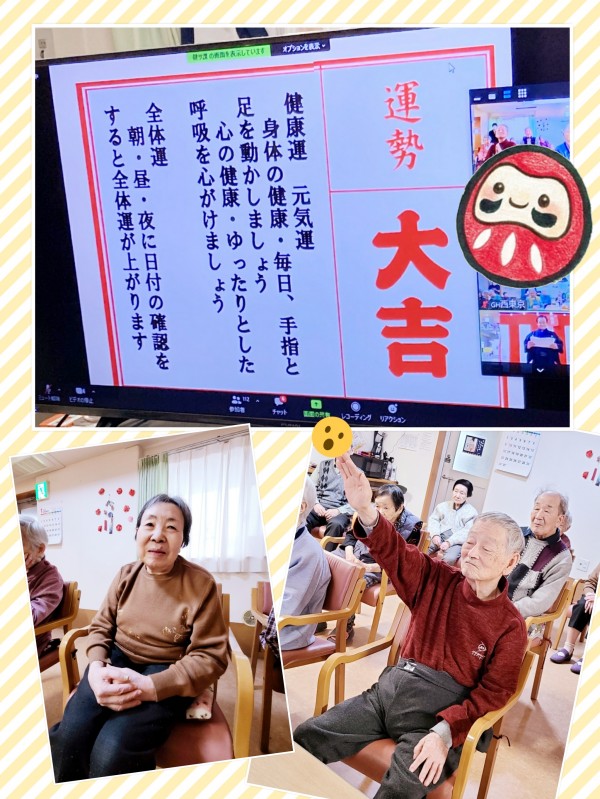 の画面を表示しています
オプションを表示
運勢
大吉
健康運 元気運
身体の健康・毎日、手指と
足を動かしましょう
心の健康・ゆったりとした
呼吸を心がけましょう
全体運
朝・昼・夜に日付の確認を
すると全体運が上がります
GH西東京
ビデオの停止
112
参加者
チャット
画面の共有
レコーディング
リアクション